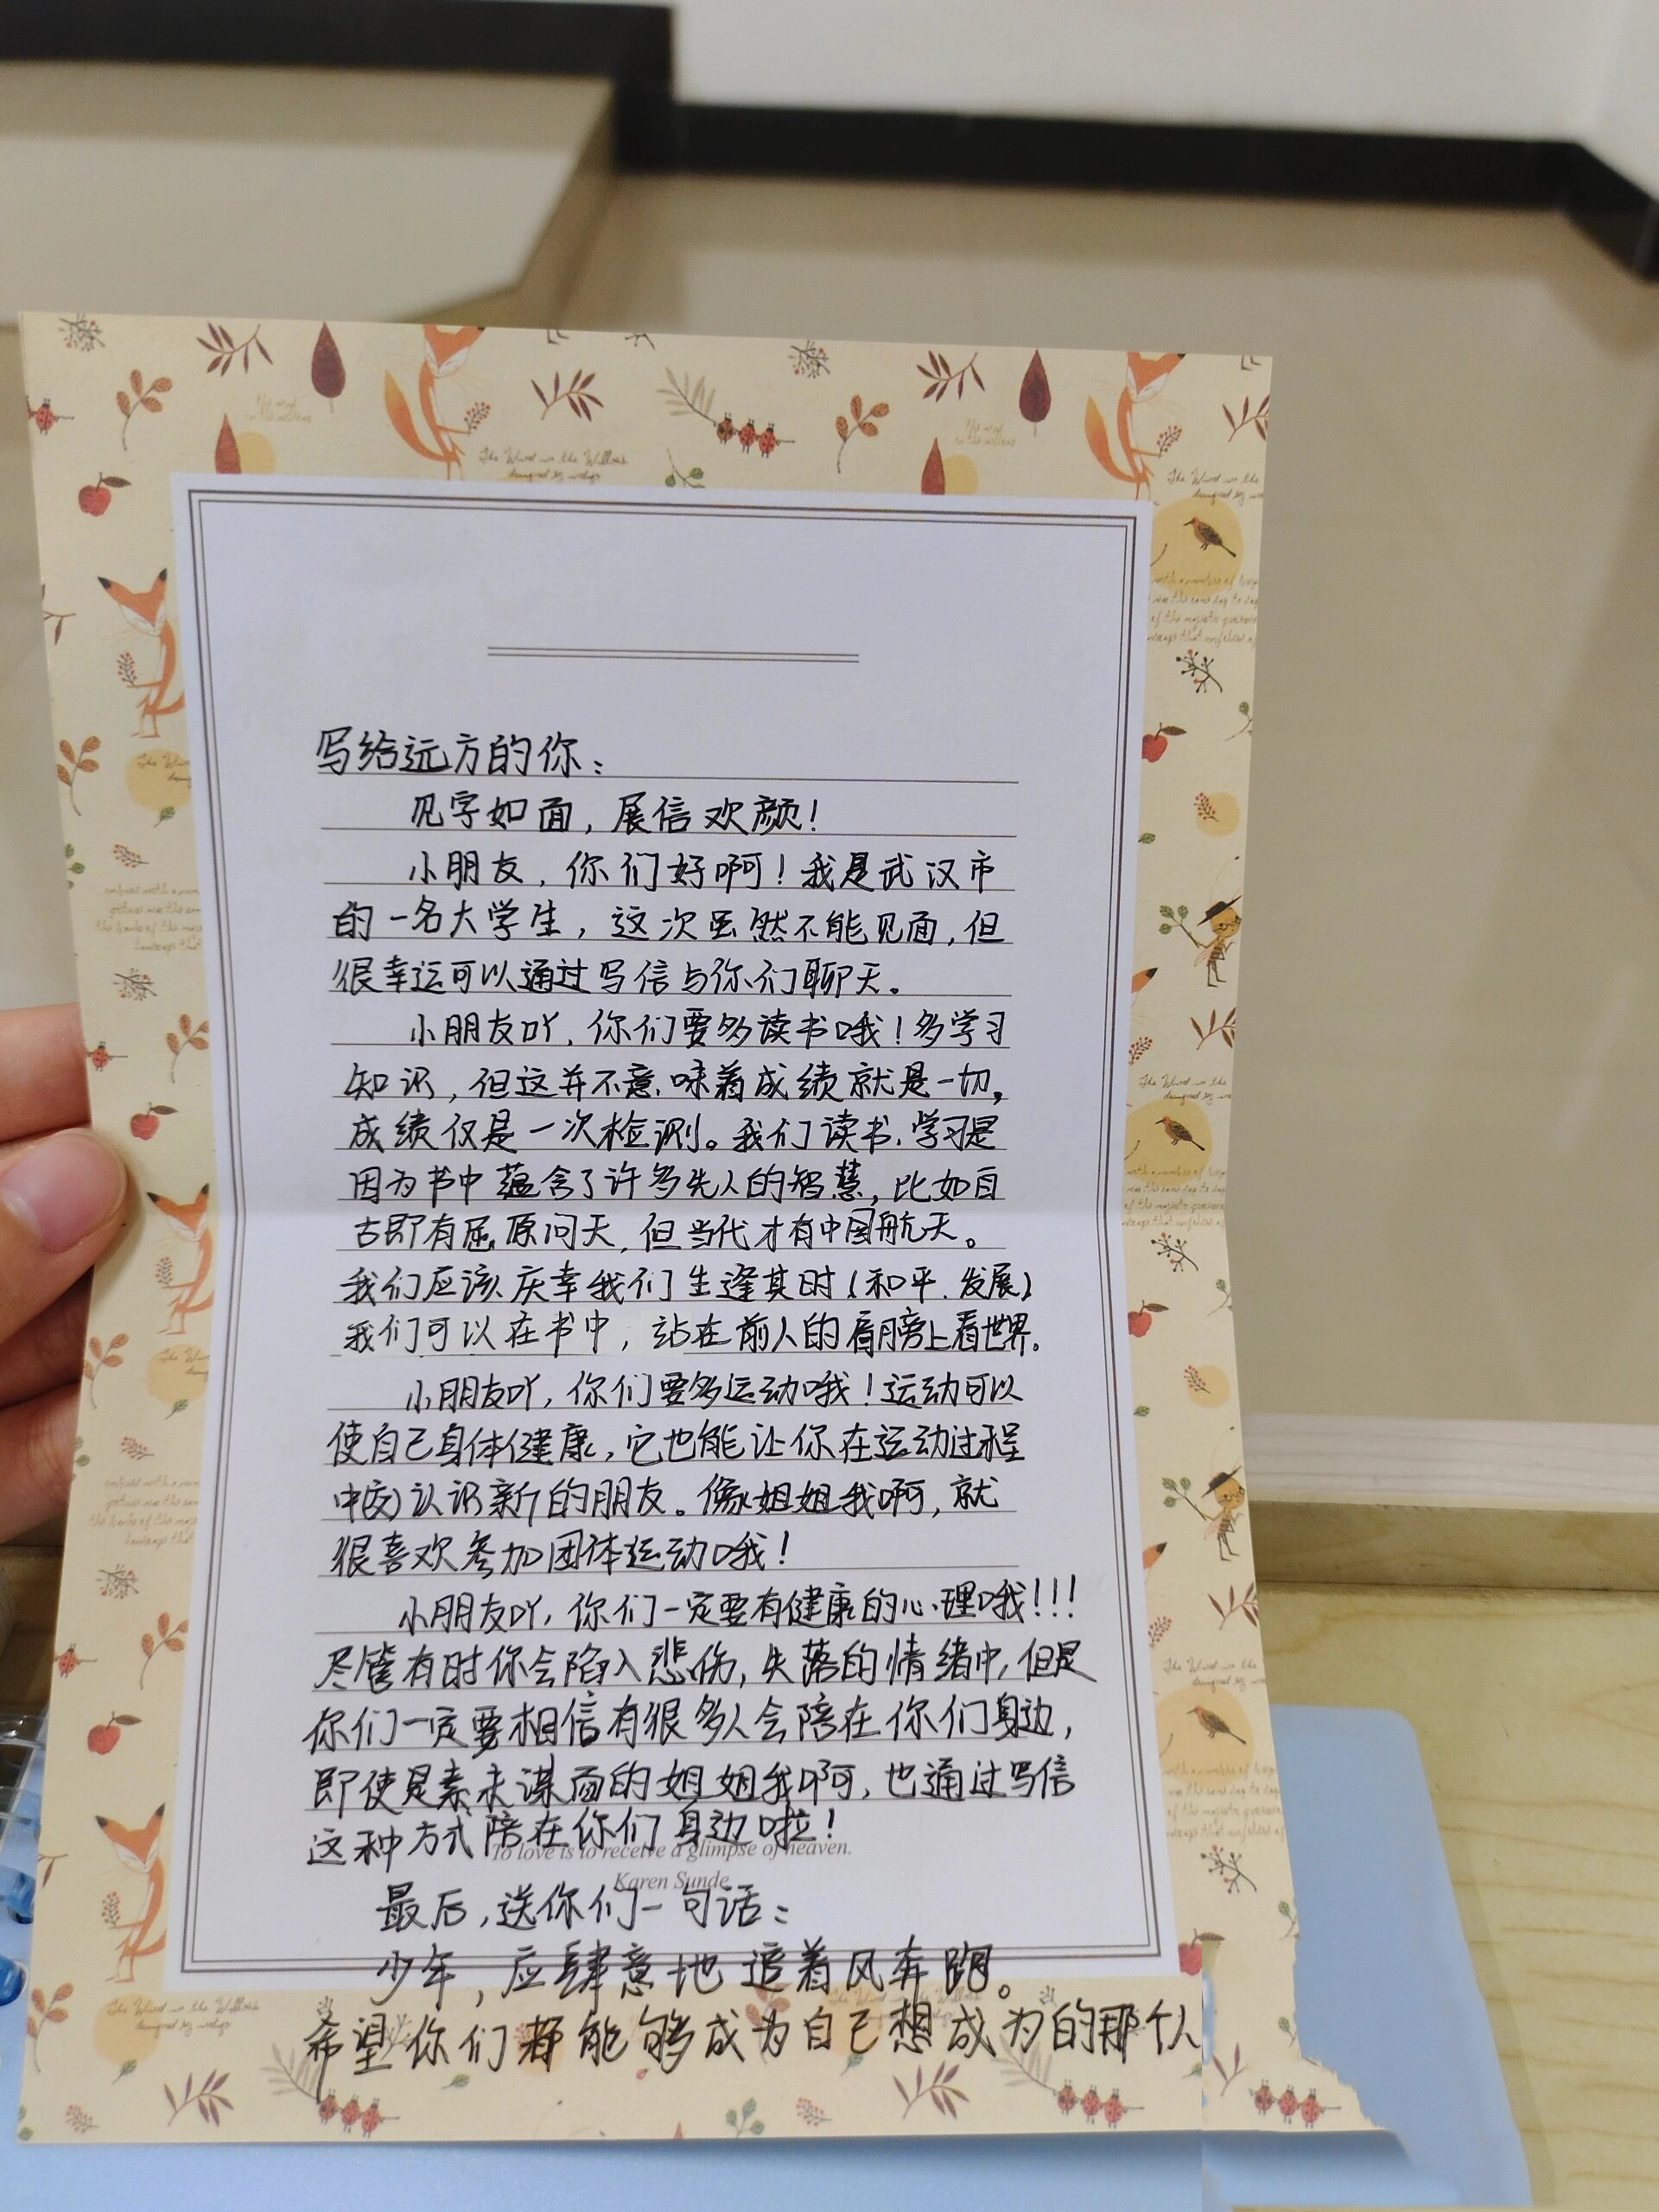 写给远方的你：
见字如面，展信欢颜！
小朋友，你们好啊！我是武汉市
的一名大学生，这次虽然不能见面，但
很幸运可以通过写信与你们聊天。
小朋友吖，你们要多读书哦！多学习
知识，但这并不意味着成绩就是一切，
成绩仅是一次检测。我们读书、学习是
因为书中蕴含了许多先人的智慧，比如自
古即有屈原问天，但当代才有中国航天。
我们应该庆幸我们生逢其时（和平、发展）
我们可以在书中，站在前人的肩膀上看世界。
小朋友吖，你们要多运动哦！运动可以
使自己身体健康，它也能让你在运动过程
中(交)认识新的朋友。像姐姐我啊，就
很喜欢参加团体运动哦！
小朋友吖，你们一定要有健康的心理哦！！！
尽管有时你会陷入悲伤，失落的情绪中，但是
你们一定要相信有很多人会陪在你们身边，
即使是素未谋面的姐姐我啊，也通过写信
这种方式陪在你们身边啦！
To love is to receive a glimpse of heaven.
Karen Sunde
最后，送你们一句话：
少年，应肆意地追着风奔跑。
希望你们都能够成为自己想成为的那个人
The Wind in the Willows